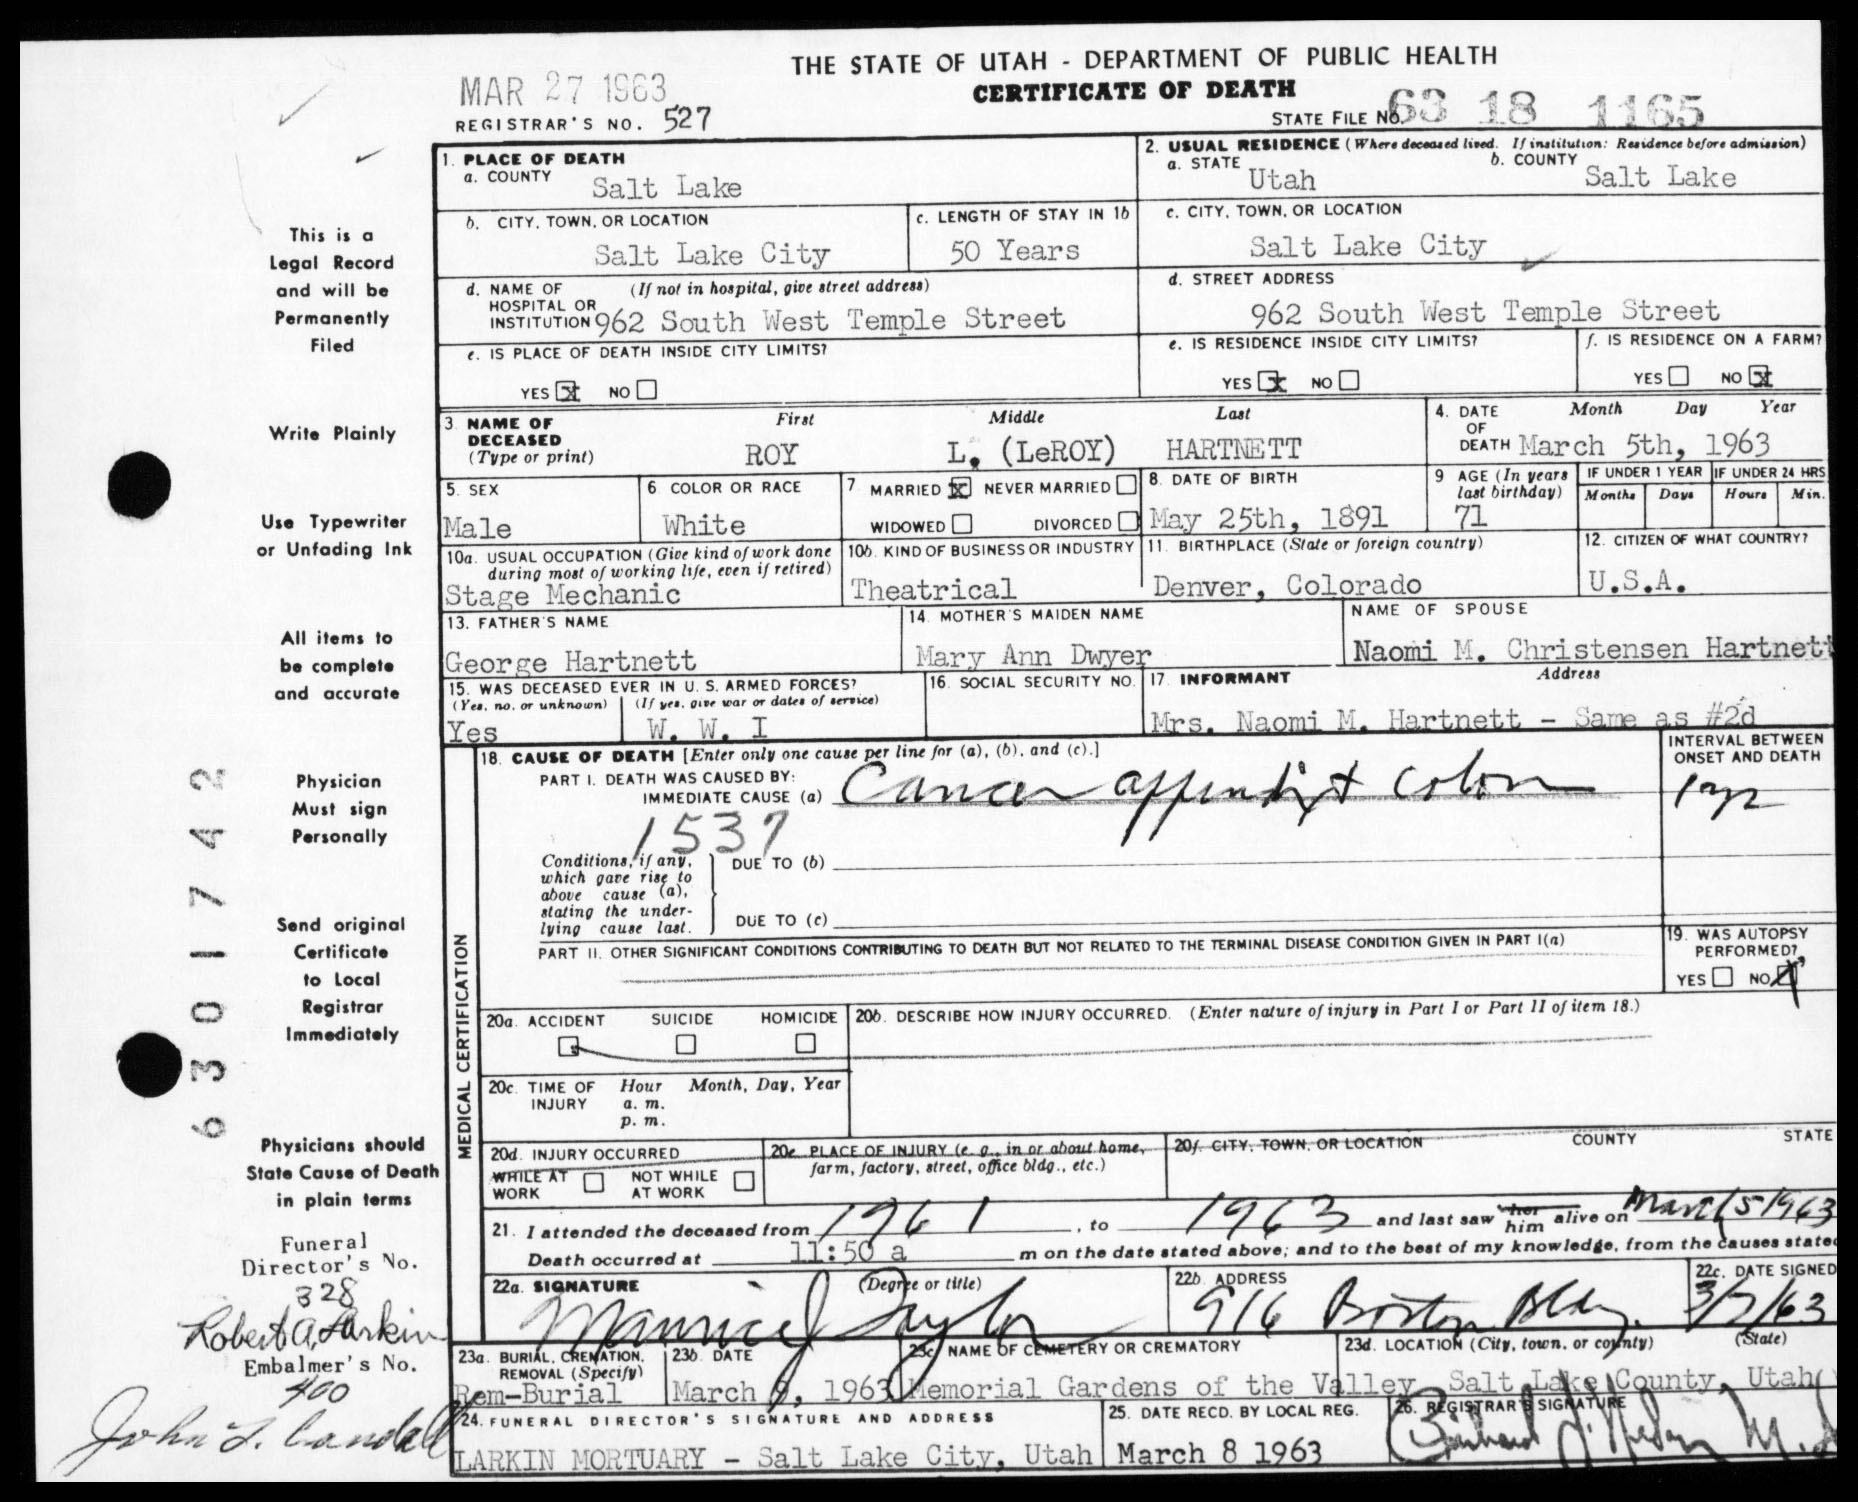 THE STATE OF UTAH - DEPARTMENT OF PUBLIC HEALTH
CERTIFICATE OF DEATH
MAR 27 1963
REGISTRAR'S NO. 527
STATE FILE NO. 63 18 1165
This is a
Legal Record
and will be
Permanently
Filed
Write Plainly
Use Typewriter
or Unfading Ink
All items to
be complete
and accurate
Physician
Must sign
Personally
Send original
Certificate
to Local
Registrar
Immediately
Physicians should
State Cause of Death
in plain terms
Funeral
Director's No.
328
Robert A. Larkin
Embalmer's No.
400
John L.
6301742
1. PLACE OF DEATH
a. COUNTY Salt Lake
2. USUAL RESIDENCE (Where deceased lived. If institution: Residence before admission)
a. STATE Utah b. COUNTY Salt Lake
b. CITY, TOWN, OR LOCATION Salt Lake City
c. LENGTH OF STAY IN 1b 50 Years
c. CITY, TOWN, OR LOCATION Salt Lake City
d. NAME OF (If not in hospital, give street address)
HOSPITAL OR
INSTITUTION 962 South West Temple Street
d. STREET ADDRESS
962 South West Temple Street
e. IS PLACE OF DEATH INSIDE CITY LIMITS?
YES x NO
e. IS RESIDENCE INSIDE CITY LIMITS?
YES x NO
f. IS RESIDENCE ON A FARM?
YES NO x
3. NAME OF
DECEASED
(Type or print)
First Middle Last
ROY L. (LeROY) HARTNETT
4. DATE OF DEATH Month Day Year
March 5th, 1963
5. SEX
Male
6. COLOR OR RACE
White
7 MARRIED x NEVER MARRIED
WIDOWED DIVORCED
8. DATE OF BIRTH
May 25th, 1891
9 AGE (In years last birthday)
71
IF UNDER 1 YEAR
Months Days
IF UNDER 24 HRS
Hours Min.
10a. USUAL OCCUPATION (Give kind of work done
during most of working life, even if retired)
Stage Mechanic
10b. KIND OF BUSINESS OR INDUSTRY
Theatrical
11. BIRTHPLACE (State or foreign country)
Denver, Colorado
12. CITIZEN OF WHAT COUNTRY?
U.S.A.
13. FATHER'S NAME
George Hartnett
14. MOTHER'S MAIDEN NAME
Mary Ann Dwyer
NAME OF SPOUSE
Naomi M. Christensen Hartnett
15. WAS DECEASED EVER IN U.S. ARMED FORCES?
(Yes, no, or unknown) (If yes, give war or dates of service)
Yes W. W. I
16. SOCIAL SECURITY NO.
17. INFORMANT Address
Mrs. Naomi M. Hartnett - Same as #2d
MEDICAL CERTIFICATION
18. CAUSE OF DEATH [Enter only one cause per line for (a), (b), and (c).]
INTERVAL BETWEEN
ONSET AND DEATH
PART I. DEATH WAS CAUSED BY:
IMMEDIATE CAUSE (a) Cancer appendix + colon
1 yr
1537
Conditions, if any,
which gave rise to
above cause (a),
stating the under-
lying cause last.
DUE TO (b)
DUE TO (c)
PART II. OTHER SIGNIFICANT CONDITIONS CONTRIBUTING TO DEATH BUT NOT RELATED TO THE TERMINAL DISEASE CONDITION GIVEN IN PART I(a)
19. WAS AUTOPSY
PERFORMED?
YES NO
20a. ACCIDENT SUICIDE HOMICIDE
20b. DESCRIBE HOW INJURY OCCURRED. (Enter nature of injury in Part I or Part II of item 18.)
20c. TIME OF INJURY
Hour Month, Day, Year
a. m.
p. m.
20d. INJURY OCCURRED
WHILE AT WORK NOT WHILE AT WORK
20e. PLACE OF INJURY (e. g., in or about home,
farm, factory, street, office bldg., etc.)
20f. CITY, TOWN, OR LOCATION COUNTY STATE
21. I attended the deceased from 1961, to 1963 and last saw her him alive on March 5 1963
Death occurred at 11:50 a m on the date stated above; and to the best of my knowledge, from the causes state
22a. SIGNATURE (Degree or title)
Maurice J Taylor
22b. ADDRESS
916 Boston Bldg.
22c. DATE SIGNED
3/7/63
23a. BURIAL, CREMATION,
REMOVAL (Specify)
Rem-Burial
23b. DATE
March 9, 1963
23c. NAME OF CEMETERY OR CREMATORY
Memorial Gardens of the Valley
23d. LOCATION (City, town, or county) (State)
Salt Lake County, Utah
24. FUNERAL DIRECTOR'S SIGNATURE AND ADDRESS
LARKIN MORTUARY - Salt Lake City, Utah
25. DATE RECD. BY LOCAL REG.
March 8 1963
26. REGISTRAR'S SIGNATURE